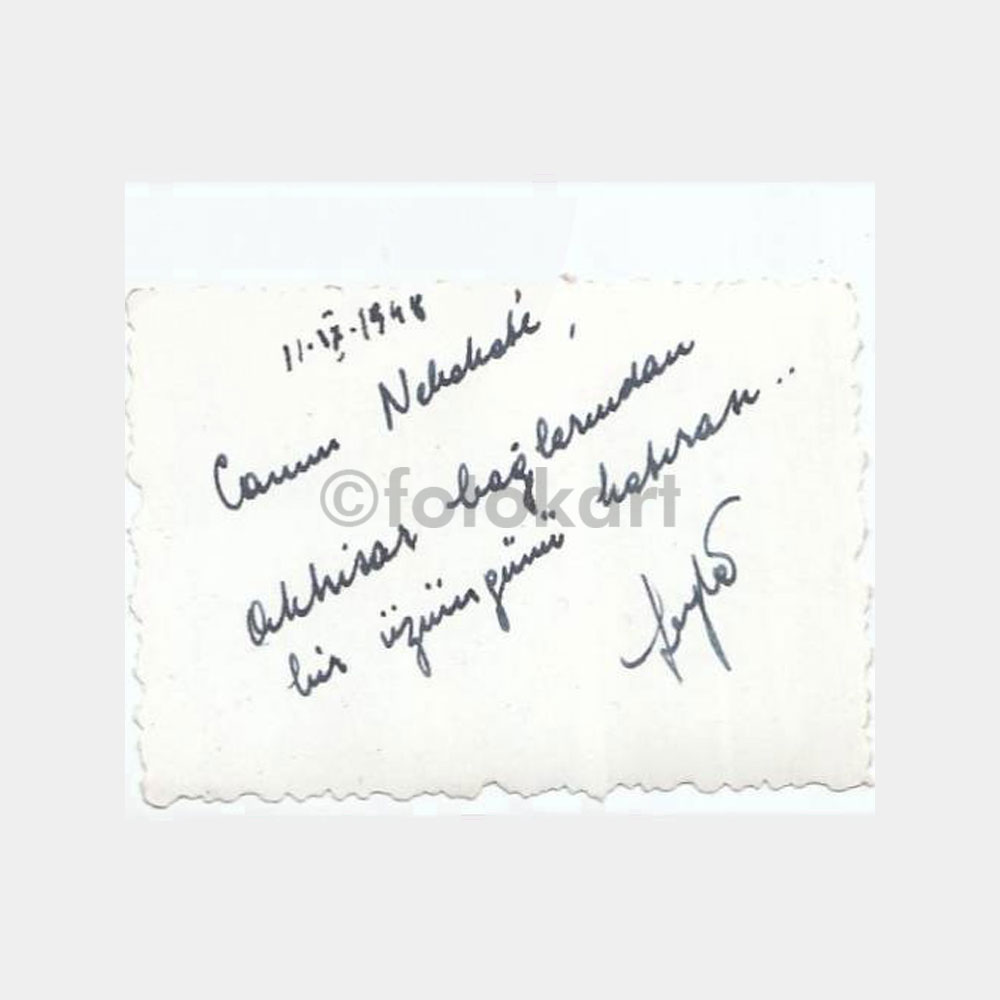 11.IX.1948
Canım
Akhisar bağlarından
bir üzüm günü hatırası..
©fotokart